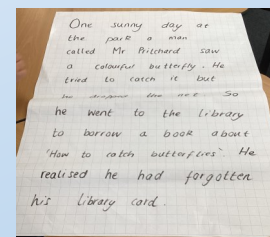 One sunny day at
the park a man
called Mr Pritchard saw
a colourful butterfly. He
tried to catch it but
he dropped the net So
he went to the library
to borrow a book about
'How to catch butterflies'. He
realised he had forgotten
his library card.